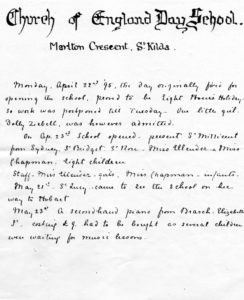 Church of England Day School.
Marlton Crescent, St Kilda.
Monday, April 22nd '95, the day originally fixed for
opening the school, proved to be Eight Hours Holiday
so work was postponed till Tuesday. One little girl
Dolly Ziebell, was however admitted.
On Ap. 23rd School opened. present Sr Millicent
from Sydney, Sr Bridget, Sr Nore, Miss Ullender, Miss
Chapman, Eight children
Staff. Miss Ullender, Miss Chapman
May 21st. Sr Lucy came to see the School on her
way to Hobart
May 23rd A secondhand piano from Brasch, Elizabeth
St. costing had to be bought as several children
were waiting for music lessons.